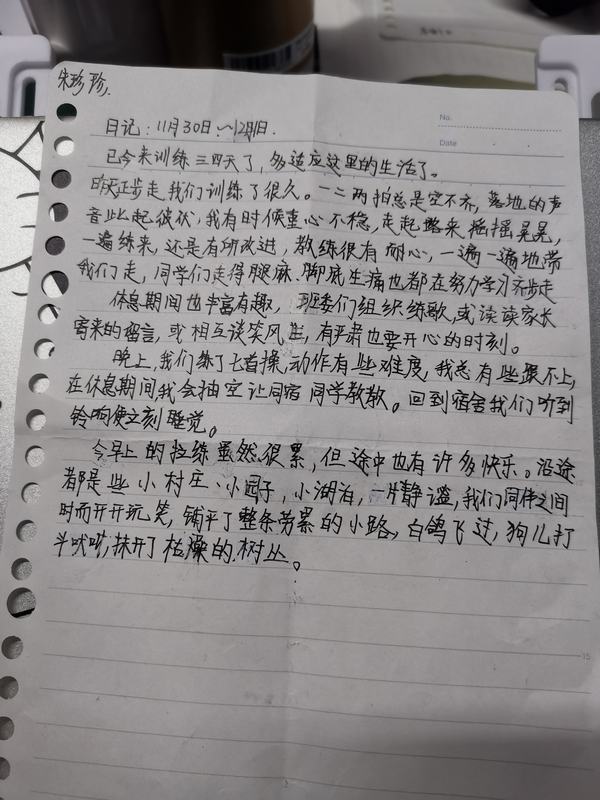 朱珍珍.
No.
日记：11月30日～12月1日.
Date
已今来训练三四天了，多适应这里的生活了。
昨天正步走我们训练了很久。一二两拍总是空不齐，落地的声
音此起彼伏，我有时候重心不稳，走起路来摇摇晃晃，
一遍练来，还是有所改进，教练很有耐心，一遍一遍地带
我们走，同学们走得腿麻.脚底生痛也都在努力学习齐步走
休息期间也丰富有趣，班委们组织练歌，或读读家长
寄来的留言，或相互谈笑风生，有严肃也要开心的时刻。
晚上，我们练了七首操，动作有些难度，我总有些跟不上，
在休息期间我会抽空让同宿同学教教。回到宿舍我们听到
铃响便立刻睡觉。
今早上的拉练虽然很累，但途中也有许多快乐。沿途
都是些小村庄、小园子，小湖泊，一片静谧，我们同伴之间
时而开开玩笑，铺平了整条劳累的小路，白鸽飞过，狗儿打
斗吠叫，抹开了枯燥的树丛。
15